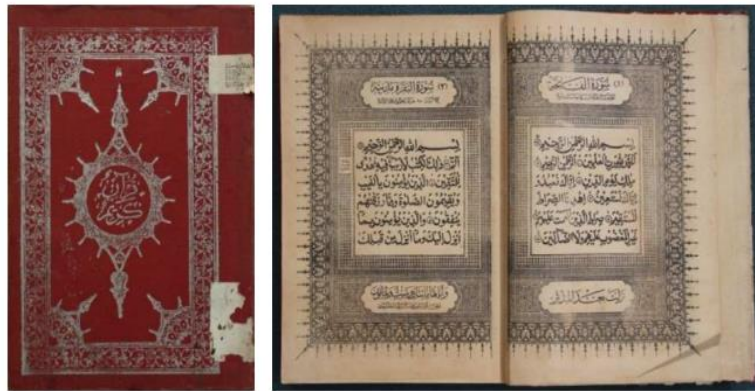 قرآن
كريم
(١) سورة الفاتحة
بسم الله الرحمن الرحيم
الحمد لله رب العلمين الرحمن الرحيم
ملك يوم الدين اياك نعبد و
اياك نستعين اهدنا الصراط
المستقيم صراط الذين انعمت عليهم
غير المغضوب عليهم ولا الضالين
(٢) سورة البقرة مدنية
بسم الله الرحمن الرحيم
الم ذلك الكتب لا ريب فيه هدى
للمتقين الذين يؤمنون بالغيب
و يقيمون الصلوة ومما رزقنهم
ينفقون والذين يؤمنون بما
انزل اليك وما انزل من قبلك